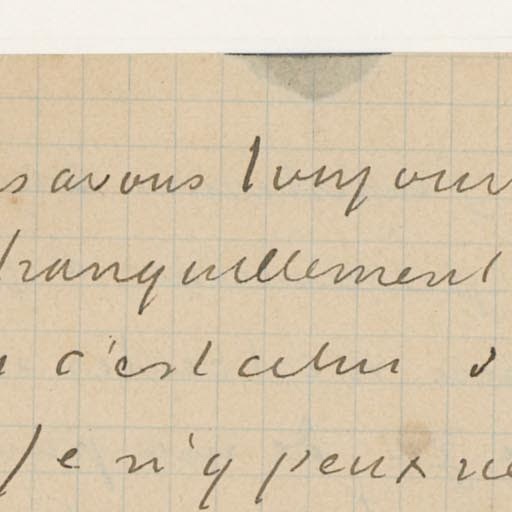 s avons toujours
tranquillement
c'est celui d
Je n'y peux re